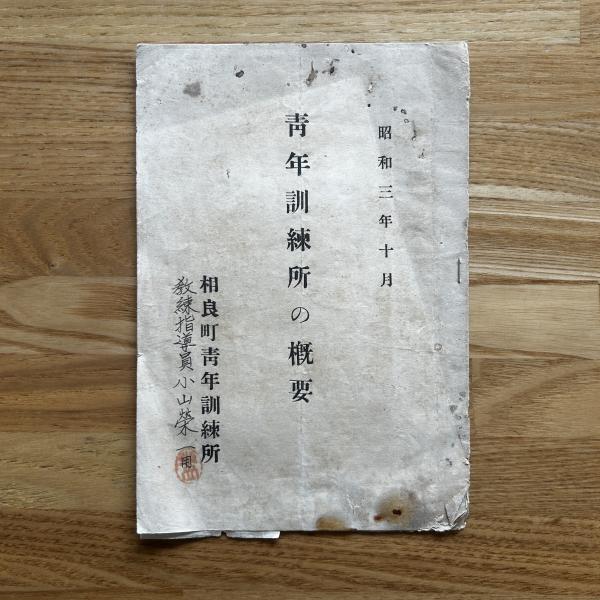 昭和三年十月
靑年訓練所の概要
相良町靑年訓練所
教練指導員小山榮一用